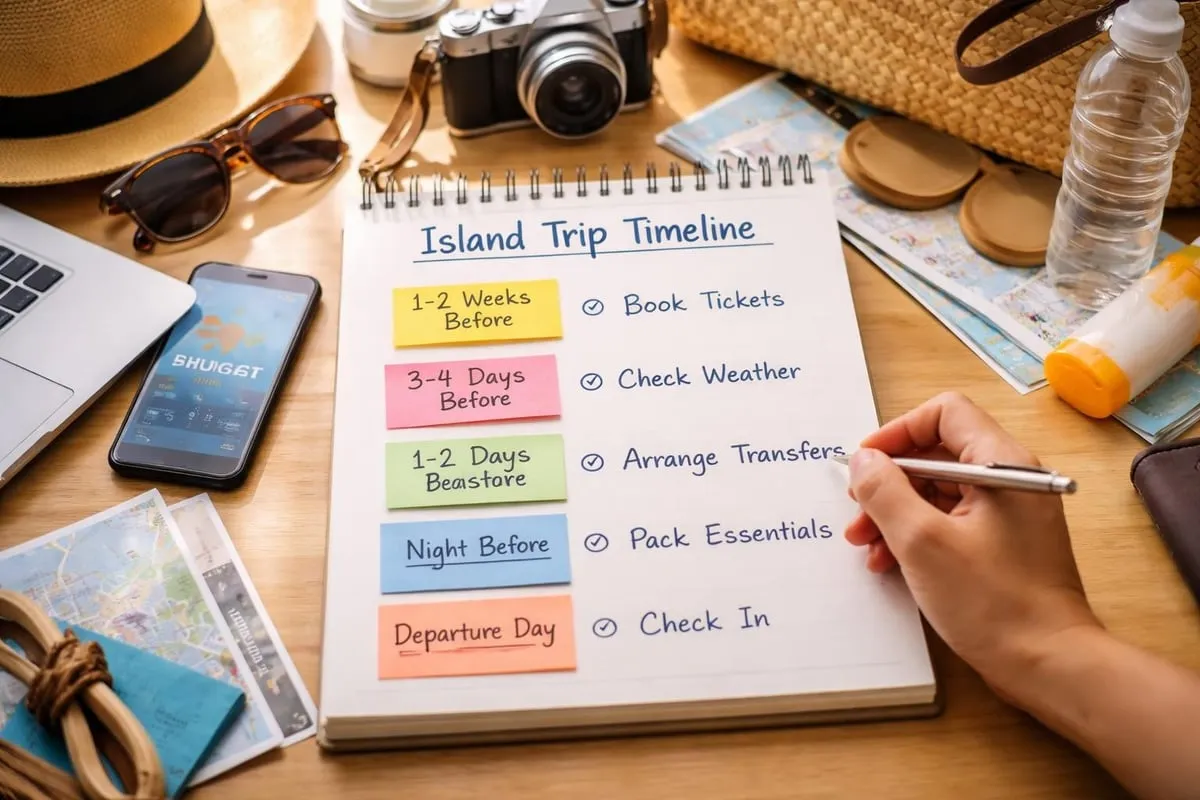 Island Trip Timeline
1-2 Weeks
Before
Book Tickets
3-4 Days
Before
Check Weather
1-2 Days
Beastore
Arrange Transfers
Night Before
Pack Essentials
Departure Day
Check In
SHUIGST